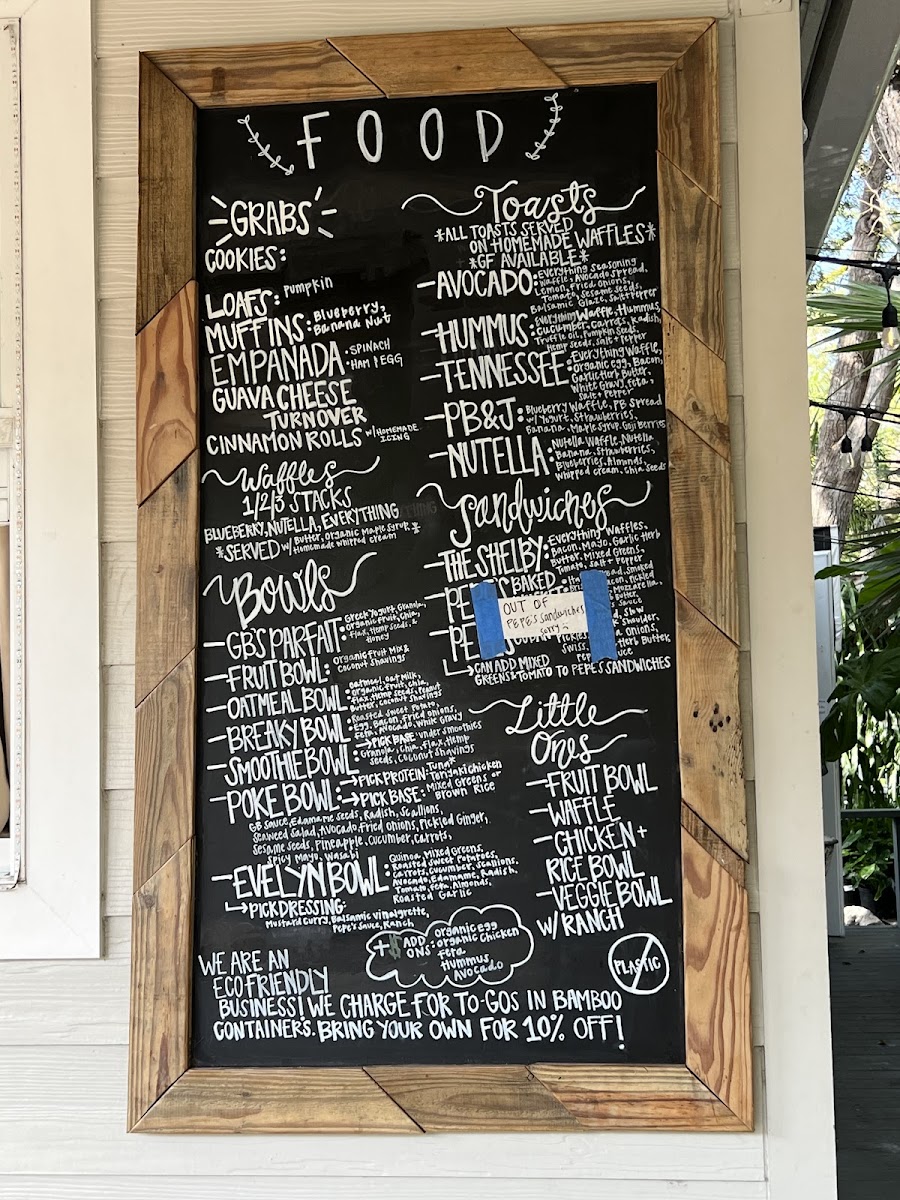 FOOD
GRABS
COOKIES:
LOAFS: Pumpkin
MUFFINS: Blueberry,
Banana Nut
EMPANADA: SPINACH
HAM & EGG
GUAVA CHEESE
TURNOVER
CINNAMON ROLLS w/HOMEMADE
ICING
Waffles
1/2/3 STACKS
BLUEBERRY, NUTELLA, EVERYTHING
*SERVED w/ Butter, Organic Maple Syrup, *
Homemade whipped cream
Bowls
-GB'S PARFAIT: Greek Yogurt, Granola,
Organic fruit, Chia,
Flax, Hemp seeds, &
Honey
-FRUIT BOWL: Organic Fruit Mix &
Coconut Shavings
-OATMEAL BOWL: Oatmeal, Oat Milk,
Organic fruit, chia,
flax, Hemp seeds, Peanut
Butter, Coconut Shavings
-BREAKY BOWL: Roasted Sweet Potato,
Egg, Bacon, Fried Onions,
Feta, Avocado, White Gravy
-SMOOTHIE BOWL: →PICK BASE: under smoothies
Granola, Chia, Flax, Hemp
Seeds, Coconut Shavings
-POKE BOWL: →PICK PROTEIN: Tuna*
Teriyaki Chicken
→PICK BASE: Mixed Greens or
Brown Rice
GB Sauce, Edamame Seeds, Radish, Scallions,
Seaweed Salad, Avocado, Fried Onions, Pickled Ginger,
Sesame Seeds, Pineapple, Cucumber, Carrots,
Spicy Mayo, Wasabi
-EVELYN BOWL: Quinoa, Mixed Greens,
Roasted Sweet Potatoes,
Carrots, Cucumber, Scallions,
Avocado, Edamame, Radish,
Tomato, Feta, Almonds,
Roasted Garlic
→PICK DRESSING:
Mustard Curry, Balsamic Vinaigrette,
Pepe's Sauce, Ranch
Toasts
*ALL TOASTS SERVED
ON HOMEMADE WAFFLES*
*GF AVAILABLE*
-AVOCADO: Everything Seasoning
Waffle, Avocado Spread,
Lemon, Fried Onions,
Tomato, Sesame Seeds,
Balsamic Glaze, Salt & Pepper
-HUMMUS: Everything Waffle, Hummus,
Cucumber, Carrots, Radish,
Truffle Oil, Pumpkin Seeds,
Hemp Seeds, Salt + Pepper
-TENNESSEE: Everything Waffle,
Organic egg, Bacon,
Garlic Herb Butter,
White Gravy, Feta,
Salt + Pepper
-PB&J: Blueberry Waffle, PB Spread
w/ Yogurt, Strawberries,
Banana, Maple Syrup, Goji Berries
-NUTELLA: Nutella Waffle, Nutella
Banana, Strawberries,
Blueberries, Almonds,
Whipped Cream, Chia Seeds
Sandwiches
-THE SHELBY: Everything Waffles,
Bacon, Mayo, Garlic Herb
Butter, Mixed Greens,
Tomato, Salt + Pepper
BAKED
smoked
Pickled
Mozzarella,
OUT OF
PEPE'S sandwiches
sorry
Slow
Shoulder,
Onions,
Swiss
Herb Butter
→CAN ADD MIXED
GREENS & TOMATO TO PEPE'S SANDWICHES
Little
Ones
-FRUIT BOWL
-WAFFLE
-CHICKEN +
RICE BOWL
-VEGGIE BOWL
W/ RANCH
ADD
ONS: organic egg
organic chicken
Feta
Hummus
Avocado
PLASTIC
WE ARE AN
ECO FRIENDLY
BUSINESS! WE CHARGE FOR TO-GOS IN BAMBOO
CONTAINERS. BRING YOUR OWN FOR 10% OFF!